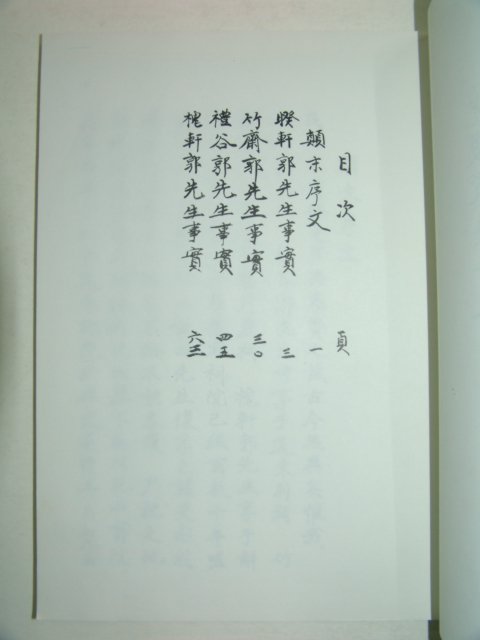 目次 頁
顛末序文 一
睽軒郭先生事實 三
竹齋郭先生事實 三〇
禮谷郭先生事實 四五
槐軒郭先生事實 六三